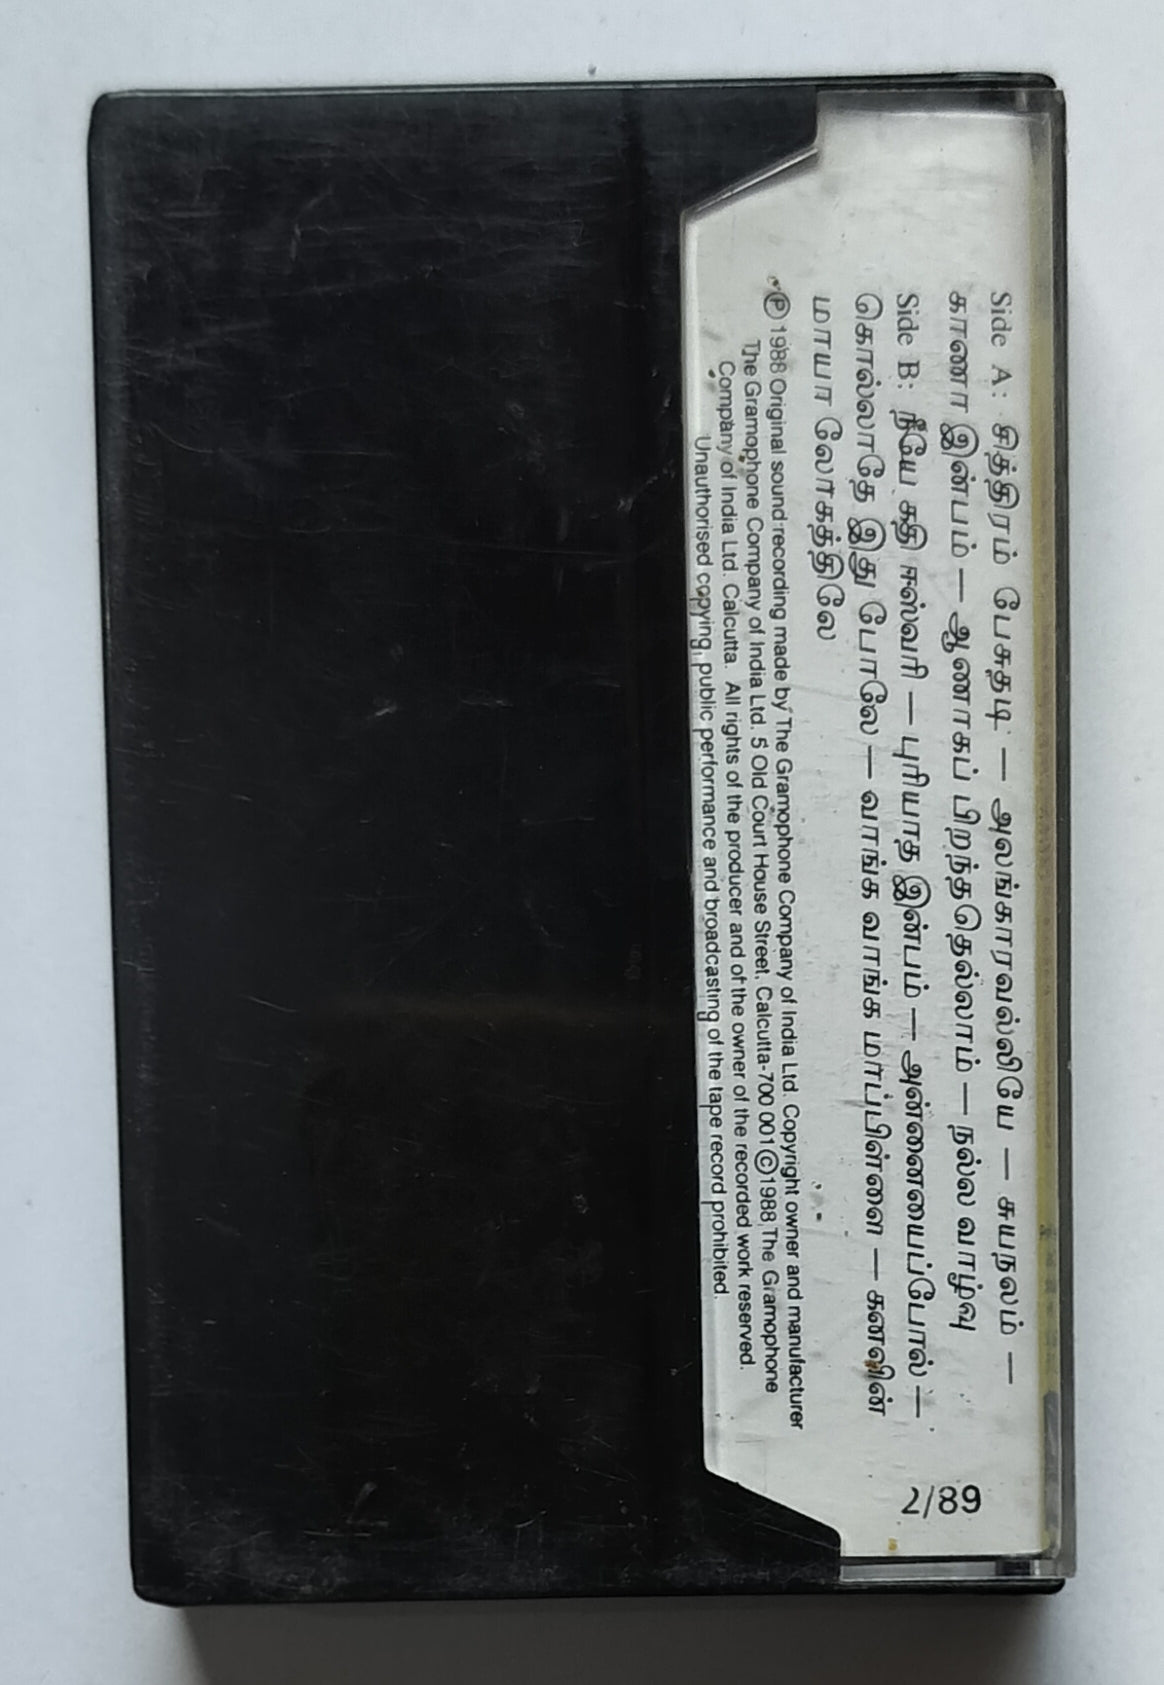 Side A: சித்திரம் பேசுதடி — அலங்காரவல்லியே — சுயநலம் —
காணா இன்பம் — ஆணாகப் பிறந்ததெல்லாம் — நல்ல வாழ்வு
Side B: நீயே கதி ஈஸ்வரி — புரியாத இன்பம் — அன்னையைப்போல் —
கொல்லாதே இது போலே — வாங்க வாங்க மாப்பிள்ளை — கனவின்
மாயா லோகத்திலே
Ⓟ 1988 Original sound recording made by The Gramophone Company of India Ltd. Copyright owner and manufacturer
The Gramophone Company of India Ltd. 5 Old Court House Street, Calcutta-700 001 © 1988 The Gramophone
Company of India Ltd. Calcutta. All rights of the producer and of the owner of the recorded work reserved.
Unauthorised copying, public performance and broadcasting of the tape record prohibited.
2/89